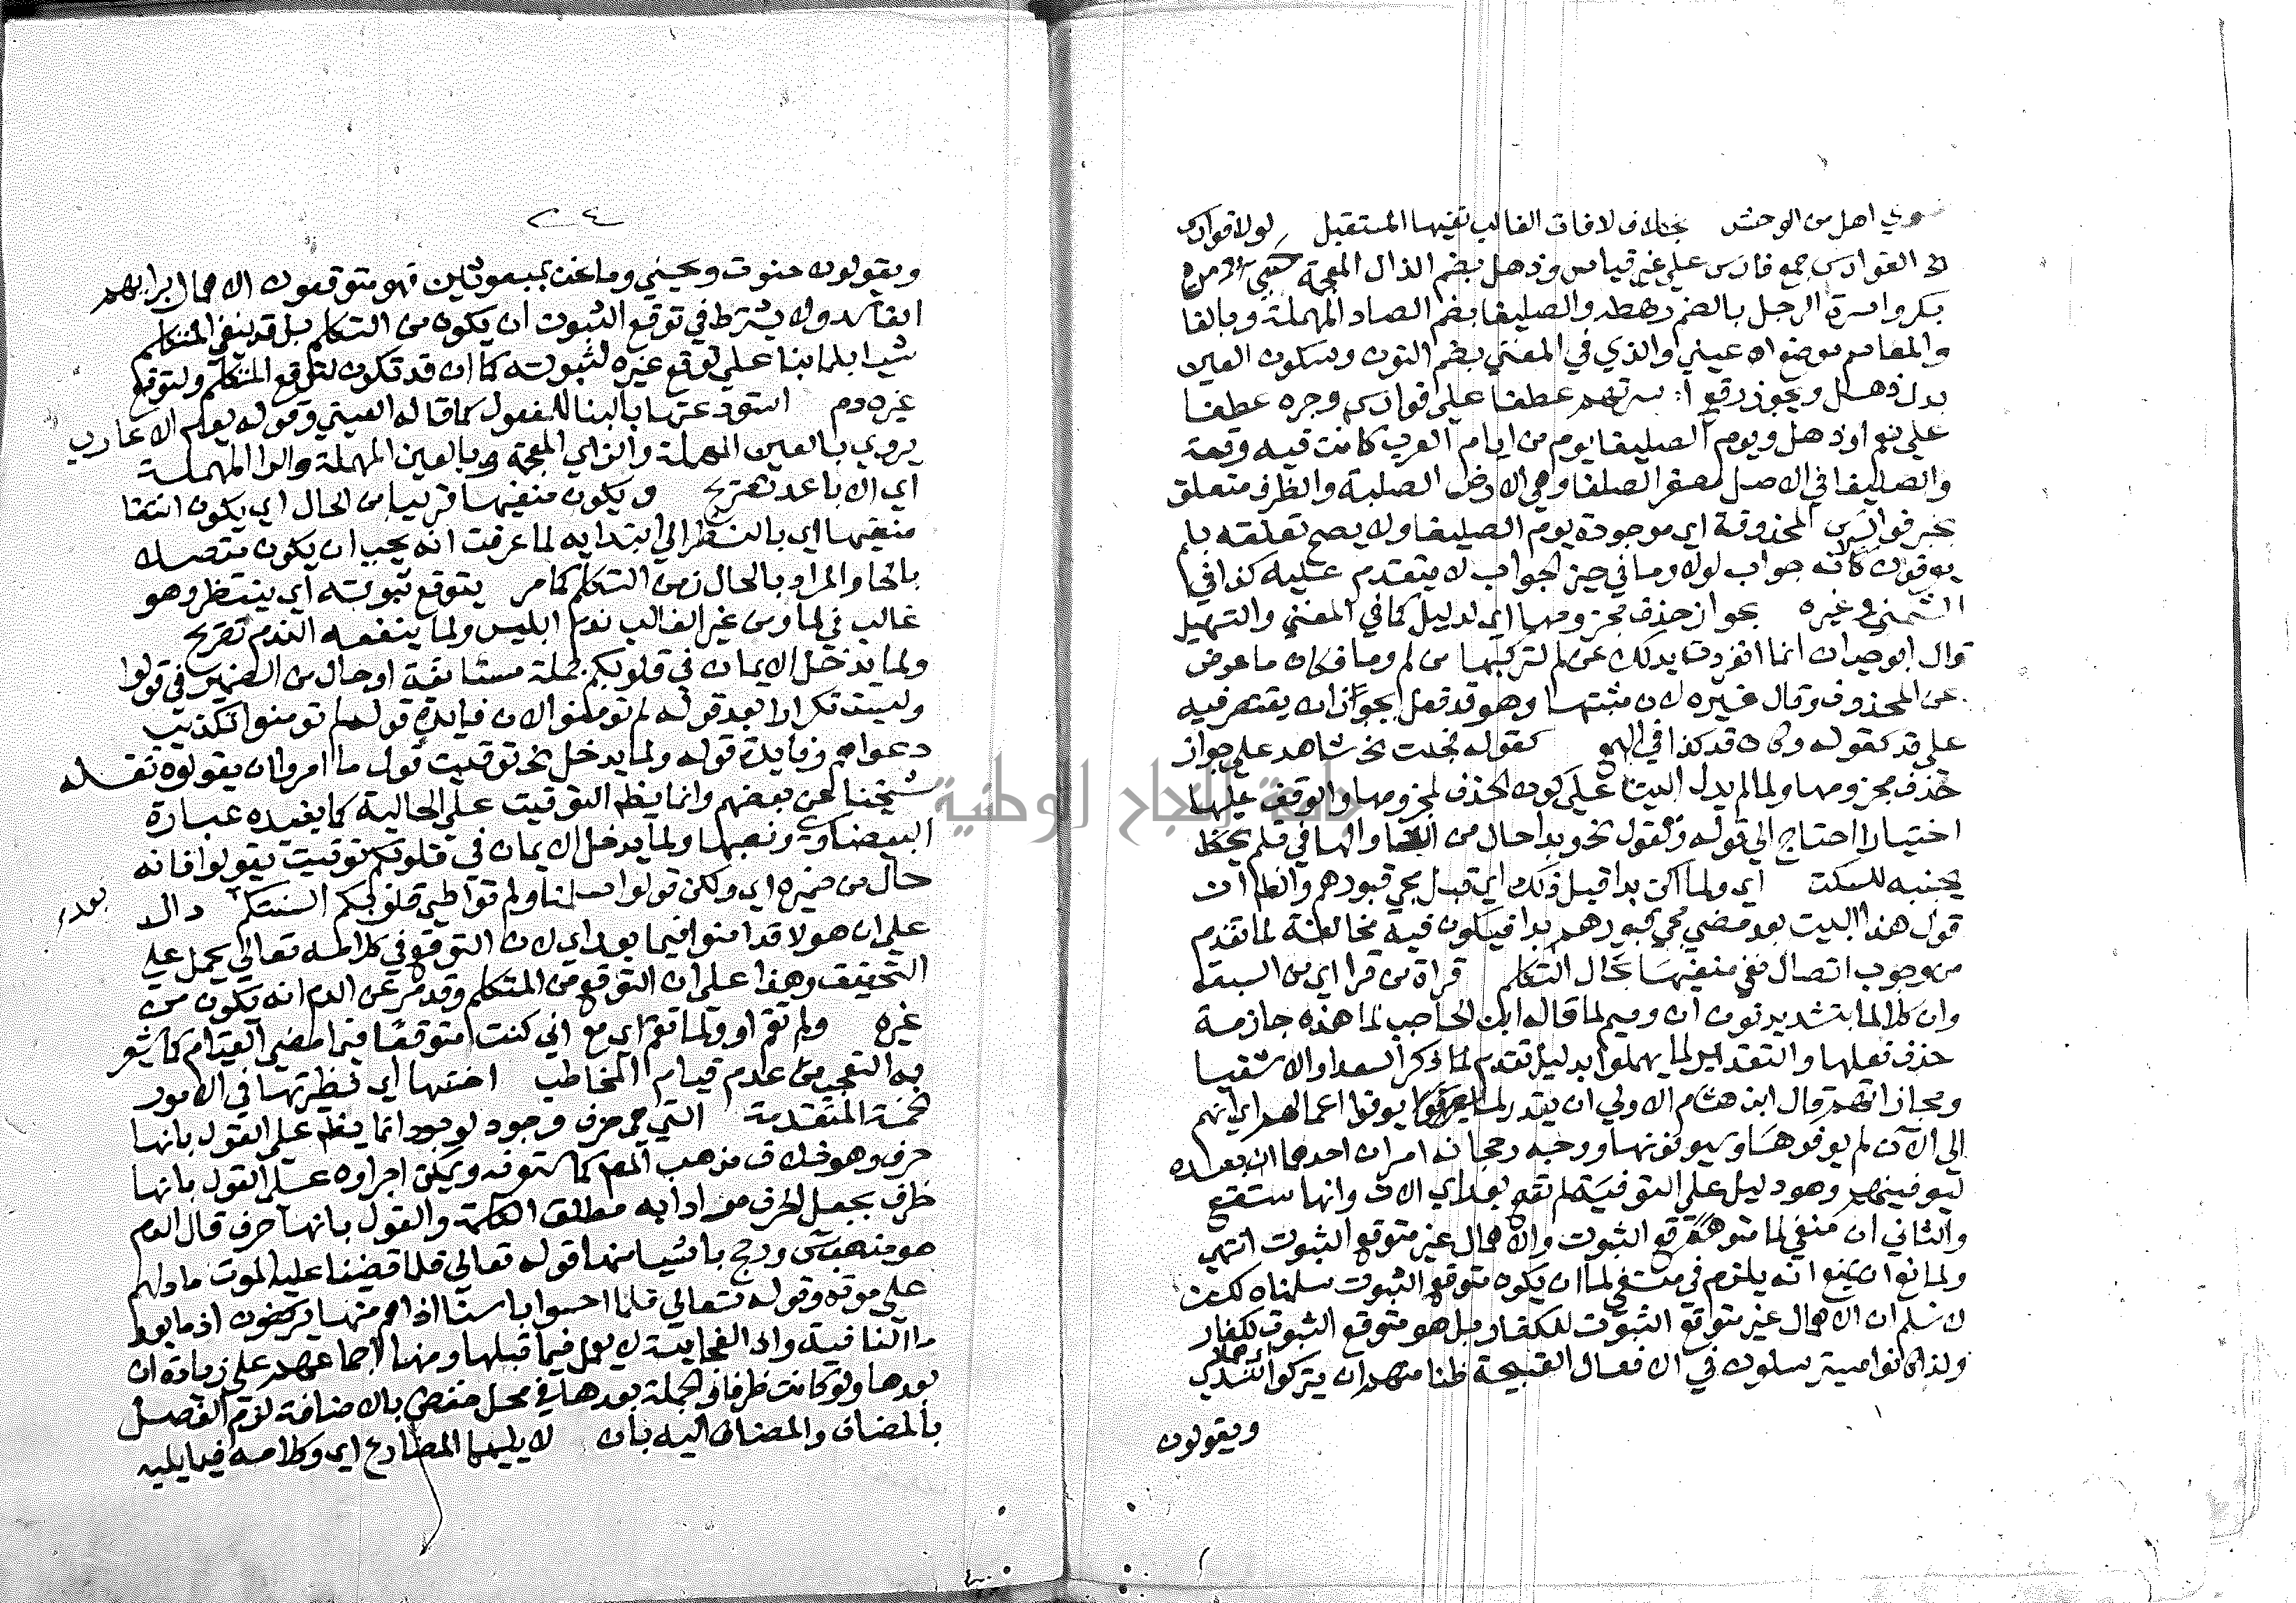 سوي اهل من الوحش بخلاف لا فان الغالب نفيها المستقبل لولا فوارس
الخ الفوارس جمع فارس علي غير قياس وذهل بضم الذال المعجمة حي من
بكر واسرة الرجل بالضم رهطه والصليفا بضم الصاد المهملة وبالفا
والذي في المغني بضم النون وسكون العين
بدل ذهل ويجوز رفع اسرتهم عطفا علي فوارس وجره عطفا
علي نعم او ذهل ويوم الصليفا يوم من ايام العرب كانت فيه وقعة
والصليفا في الاصل مصغر الصلفا وهي الارض الصلبة والظرف متعلق
بخبر فوارس المحذوفة اي موجودة يوم الصليفا ولا يصح تعلقه بلم
يوفون لانه جواب لولا وما في حيز الجواب لا يتقدم عليه كذا في
الشمني وغيره بجواز حذف مجزومها اي لدليل كما في المغني والتسهيل
قال ابو حيان انما انفردت بذلك عن لم لتركبها من لم وما فكان ما عوض
عن المحذوف وقال غيره لان مثبتها وهو قد فعل يجوز ان يقتصر فيه
علي قد كقوله وكان قد كذا في الهمع كقوله فجئت الخ شاهد علي جواز
حذف مجزومها ولما لم يدل البيت علي كون الحذف لمجزومها والوقف عليها
اختيارا احتاج الي قوله وتقول نحو وبدا حال من التا والها في فلم
يجبنه للسكت اي ولما اكن بدا قبل ذلك اي قبل مجي قبورهم والظاهر ان
قول هذا البيت بعد مضي مجي قبورهم بدا فيكون فيه مخالفة لما تقدم
من وجوب اتصال نفي منفيها بحال التكلم قراة من قرا اي من السبعة
وان كلا لما بتشديد نون ان وميم لما قاله ابن الحاجب لما هذه جازمة
حذف فعلها والتقدير لما يهملوا بدليل تقدم ذكر السعدا والاشقيا
ومجازاتهم قال ابن هشام الاولي ان يقدر لما يوفوا اعمالهم اي انهم
الي الآن لم يوفوها وسيوفونها ووجه رجحانه امران احدهما ان بعده
ليوفينهم وهو دليل علي التوفية لم تقع بعد اي الان وانها ستقع
والثاني ان منفي لما متوقع الثبوت والاهمال غير متوقع الثبوت انتهي
ولمانع ان يمنع انه يلزم في منفي لما ان يكون متوقع الثبوت سلمناه لكن
لا نسلم ان الاهمال غير متوقع الثبوت للكفار بل هو متوقع الثبوت لكفار
ولذا كانوا يسترسلون في الافعال القبيحة ظنا منهم ان يتركوا
ويقولون
٢٤
ويقولون حنوت ويحيني وما نحن بمبعوثين فهم متوقعون الاهمال ابراهيم
ولا يشترط في توقع الثبوت ان يكون من التكلم بل قد ينفي المتكلم
شيا بلما بنا علي توقع غيره لثبوته كما ان قد تكون لتوقع المتكلم ولتوقع
غيره دم استودعتها بالبنا للمفعول كما قاله العيني وقوله يوم الاعازب
يروي بالعين المهملة والزاي المعجمة وبالعين المهملة والرا المهملة
اي الاباعد تصريح ويكون منفيها قريبا من الحال اي يكون انتفا
منفيها اي بالنظر الي ابتدايه لما عرفت انه يجب ان يكون متصلا
بالحال والمراد بالحال زمن التكلم كما مر يتوقع ثبوته اي ينتظر وهو
غالب في لما ومن غير الغالب ندم ابليس ولما ينفعه الندم تصريح
ولما يدخل الايمان في قلوبكم جملة مستانفة او حال من الضمير في قولوا
وليست تكرارا بعد قوله لم تومنوا لان فايدة قوله لم تومنوا تكذيب
دعواهم وفايدة قوله ولما يدخل الخ توقيت قول ما امروا ان يقولوه نقله
شيخنا عن بعضهم وانما يظهر التوقيت علي الحالية كما يفيده عبارة
البيضاوي ونصها ولما يدخل الايمان في قلوبكم توقيت يقولوا فانه
حال من ضميره اي ولكن قولوا اسلمنا ولم تواطي قلوبكم السنتكم دال
بعد
علي ان هولا قد امنوا فيما بعد اي لان التوقع في كلامه تعالي يحمل علي
التحقيق وهذا علي ان التوقع من المتكلم وقد مر عن الدم انه يكون من
غيره ولم تقم او ولما تقم اي مع اني كنت متوقعا فيما مضي القيام كما يشعر
به التعجب من عدم قيام المخاطب اختها اي نظيرتها في الامور
الخمسة المتقدمة التي هي حرف وجود لوجود انما يظهر علي القول بانها
حرف وهو خلاف مذهب المص كما ستعرفه ويمكن اجراوه علي القول بانها
ظرف بجعل الحرف مرادا به مطلق الكلمة والقول بانها حرف قال الدم
هو مذهب س ورجح باشيا منها قوله تعالي فلما قضينا عليه الموت ما دلهم
علي موته وقوله تعالي فلما احسوا باسنا اذا هم منها يركضون اذ ما بعد
ما النافية واذا الفجايية لا يعمل فيما قبلها ومنها اجماعهم علي زيادة ان
بعدها ولو كانت ظرفا في الجملة بعدها في محل خفض بالاضافة لزم الفصل
بالمضاف والمضاف اليه بان لا يليها المضارع اي وكلامه فيما يليه
جامعة النجاح الوطنية